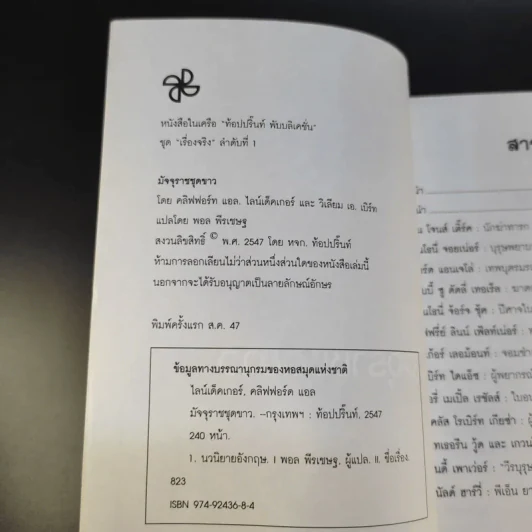 หนังสือในเครือ "ท้อปปริ้นท์ พับบลิเคชั่น"
ชุด "เรื่องจริง" ลำดับที่ 1
มัจจุราชชุดขาว
โดย คลิฟฟอร์ท แอล. ไลน์เด็คเกอร์ และ วิเลียม เอ. เบิร์ท
แปลโดย พอล พีรเชษฐ
สงวนลิขสิทธิ์ © พ.ศ. 2547 โดย หจก. ท้อปปริ้นท์
ห้ามการลอกเลียนไม่ว่าส่วนหนึ่งส่วนใดของหนังสือเล่มนี้
นอกจากจะได้รับอนุญาตเป็นลายลักษณ์อักษร
พิมพ์ครั้งแรก ส.ค. 47
ข้อมูลทางบรรณานุกรมของหอสมุดแห่งชาติ
ไลน์เด็คเกอร์, คลิฟฟอร์ด แอล
มัจจุราชชุดขาว. --กรุงเทพฯ : ท้อปปริ้นท์, 2547
240 หน้า.
1. นวนิยายอังกฤษ. I พอล พีรเชษฐ, ผู้แปล. II. ชื่อเรื่อง.
823
ISBN 974-92436-8-4
โจนส์ เดิ้ร์ค : นักฆ่าทารก
จอยเนอร์ : บุรุษพยาบ
แอนเจโล่ : เทพบุตรมรณ
ซู คัดลี่ เทอเร็ล : ฆาต
จอร์จ ชุ้ด : ปีศาจใน
ลินน์ เฟ็ลท์เน่อร์ :
เลอม้อนท์ : จอมช่า
ไดแอ๊ซ : ผู้พยากรณ์
เมเปิ้ล เรชัลส์ : ใบอน
คลัส โรเบิร์ท เกียซ่า :
ทเธอรีน วู้ด และ เกวน
นดี้ เพาเว่อร์ : "วีรบุรุษ
นัลด์ ฮาร์วี่ : พีเอ็น ยา